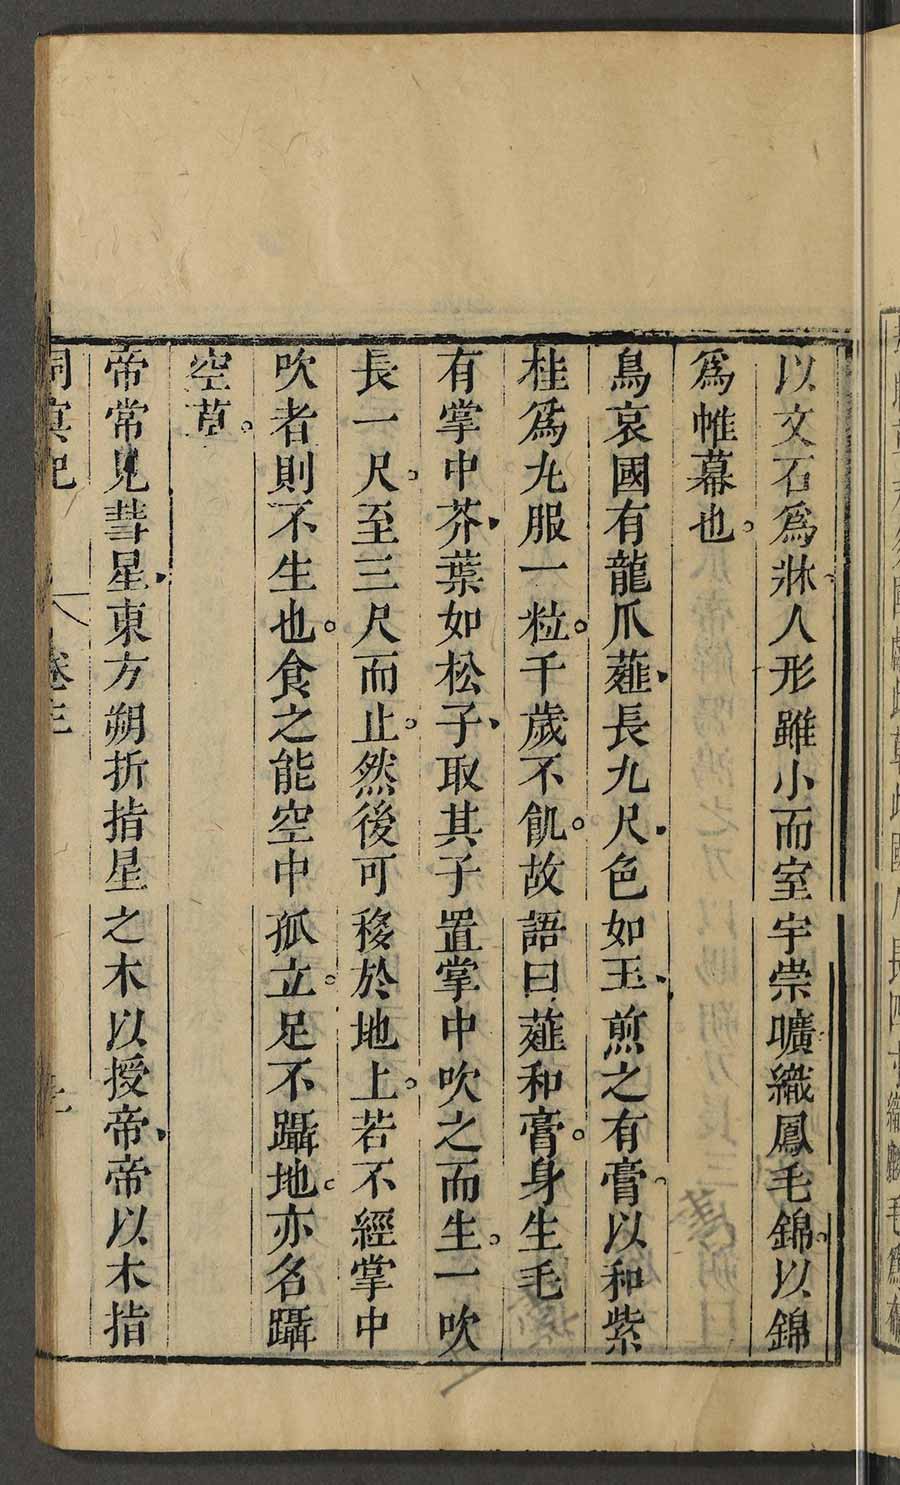 以文石爲牀人形雖小而室宇崇曠織鳳毛錦以錦
爲帷幕也。
鳥哀國有龍爪薤長九尺色如玉煎之有膏以和紫
桂爲丸服一粒。千歲不飢。故語曰薤和膏。身生毛
有掌中芥葉如松子取其子置掌中吹之而生。一吹
長一尺。至三尺而止。然後可移於地上。若不經掌中
吹者則不生也。食之能空中孤立。足不躡地。亦名躡
空草。
帝常見彗星東方朔折指星之木以授帝帝以木指
洞冥記 卷三